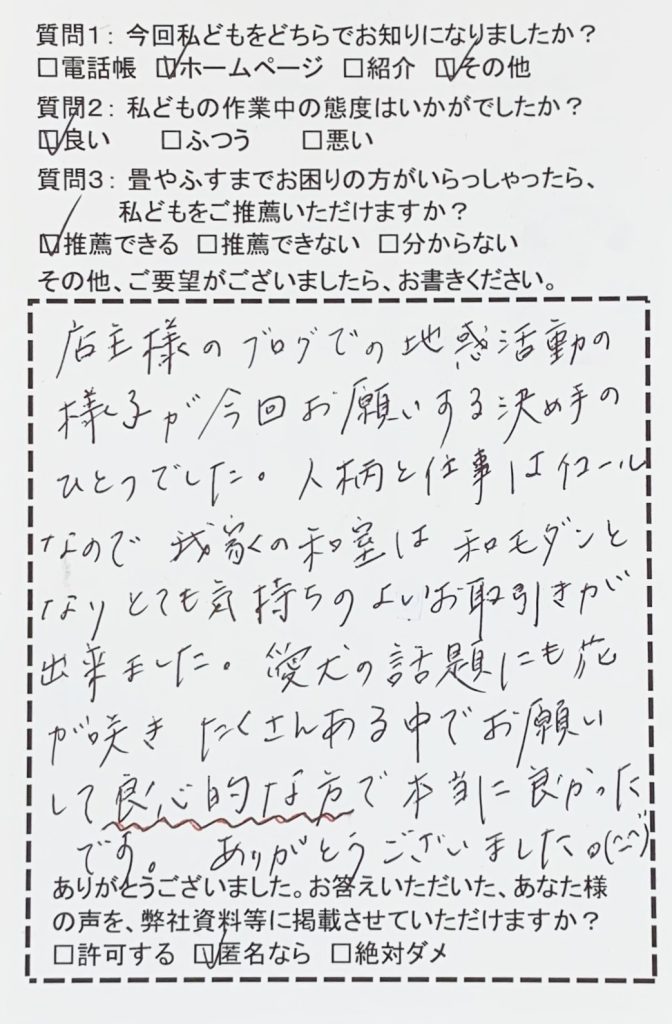 質問1: 今回私どもをどちらでお知りになりましたか?
□電話帳 ☑ホームページ □紹介 ☑その他
質問2: 私どもの作業中の態度はいかがでしたか?
☑良い □ふつう □悪い
質問3: 畳やふすまでお困りの方がいらっしゃったら、
私どもをご推薦いただけますか?
☑推薦できる □推薦できない □分からない
その他、ご要望がございましたら、お書きください。
店主様のブログでの地惑活動の
様子が今回お願いする決め手の
ひとつでした。人柄と仕事はイコール
なので我家の和室は和モダンと
なりとても気持ちのよいお取引きが
出来ました。愛犬の話題にも花
が咲きたくさんある中でお願い
して良心的な方で本当に良かった
です。ありがとうございました。(^-^)
ありがとうございました。お答えいただいた、あなた様
の声を、弊社資料等に掲載させていただけますか?
□許可する ☑匿名なら □絶対ダメ